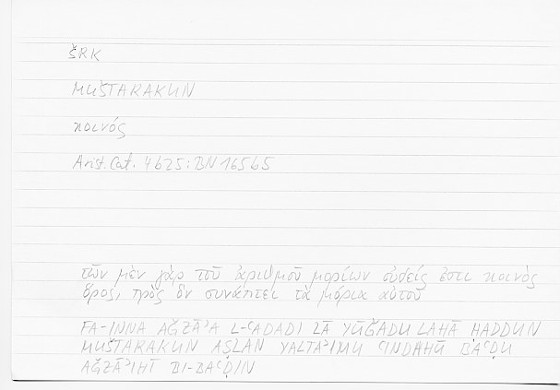 ŠRK
MUŠTARAKUN
κοινός
Arist. Cat. 4b25 : BN 165b5
τῶν μὲν γὰρ τοῦ ἀριθμοῦ μορίων οὐδείς ἐστι κοινὸς
ὅρος, πρὸς ὃν συνάπτει τὰ μόρια αὐτοῦ
FA-INNA AǦZĀʾA L-ʿADADI LĀ YŪǦADU LAHĀ ḤADDUN
MUŠTARAKUN AṢLAN YALTAʾIMU ʿINDAHŪ BAʿḌU
AǦZĀʾIHĪ BI-BAʿḌIN